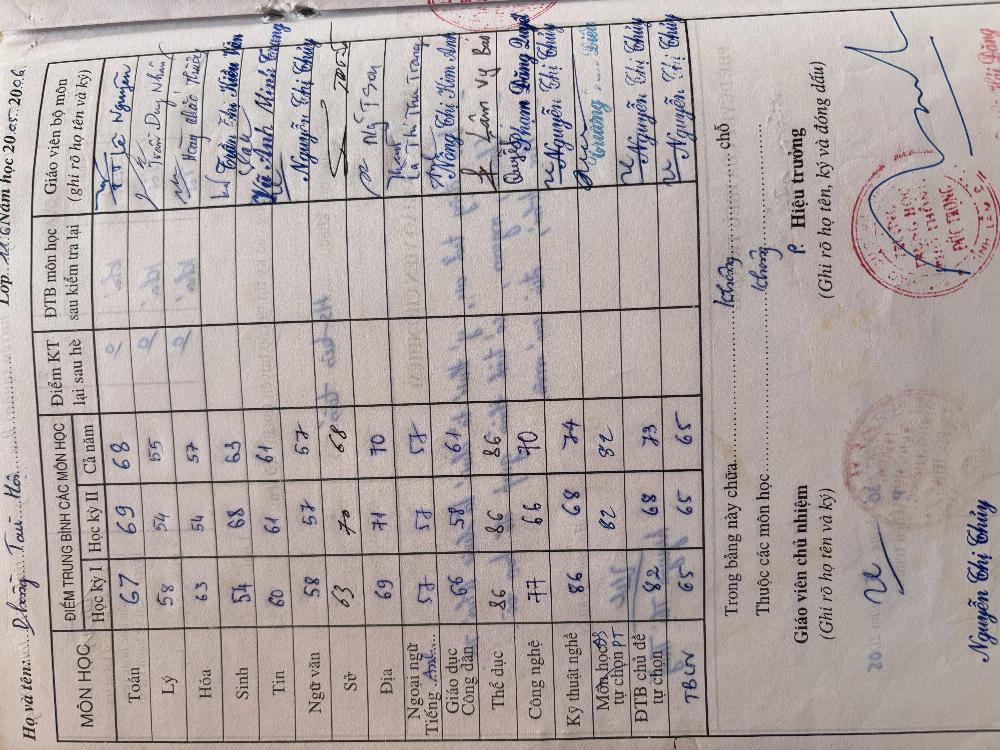 Họ và tên: Phùng Tài Lớp 11.6 Năm học 2005 2006
MÔN HỌC ĐIỂM TRUNG BÌNH CÁC MÔN HỌC Điểm KT lại sau hè ĐTB môn học sau kiểm tra lại Giáo viên bộ môn (ghi rõ họ tên và ký)
Học kỳ I Học kỳ II Cả năm
Toán 67 69 68 Nguyên
Lý 58 54 55 Trần Duy Nhân
Hóa 63 54 57 Hoàng
Sinh 54 68 63 Trần Thị Kiều Vân
Tin 60 61 61 Vũ Anh Minh Trang
Ngữ văn 58 57 57 Nguyễn Thị Thủy
Sử 63 70 68
Địa 69 71 70 Ngô T Sơn
Ngoại ngữ Tiếng Anh 57 57 57 La Thị Thu Trang
Giáo dục Công dân 66 58 61 Nông Thị Kim Anh
Thể dục 86 86 86 Lâm Vy Ban
Công nghệ 77 66 70 Phạm Đăng Quyết
Kỹ thuật nghề 86 68 74 Nguyễn Thị Thủy
Môn học tự chọn 82 82
ĐTB chủ đề tự chọn 82 68 73 Nguyễn Thị Thủy
TBCN 65 65 65 Nguyễn Thị Thủy
Trong bảng này chữa không chỗ
Thuộc các môn học không
Giáo viên chủ nhiệm P. Hiệu trưởng
(Ghi rõ họ tên và ký) (Ghi rõ họ tên, ký và đóng dấu)
TRUNG HỌC
PHỔ THÔNG
Nguyễn Thị Thủy